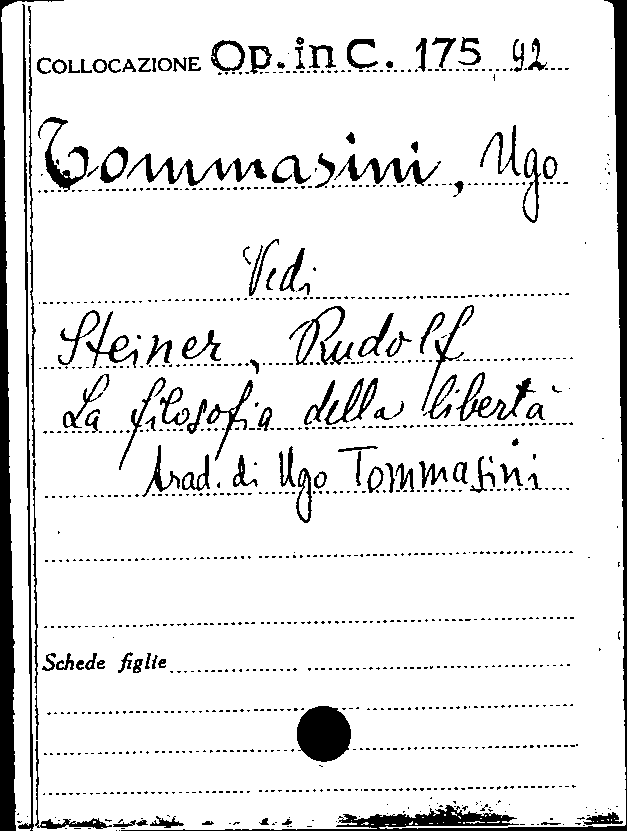 COLLOCAZIONE Op. in C. 175 92
Tommasini, Ugo
Vedi
Steiner, Rudolf
La filosofia della libertà
trad. di Ugo Tommasini
Schede figlie